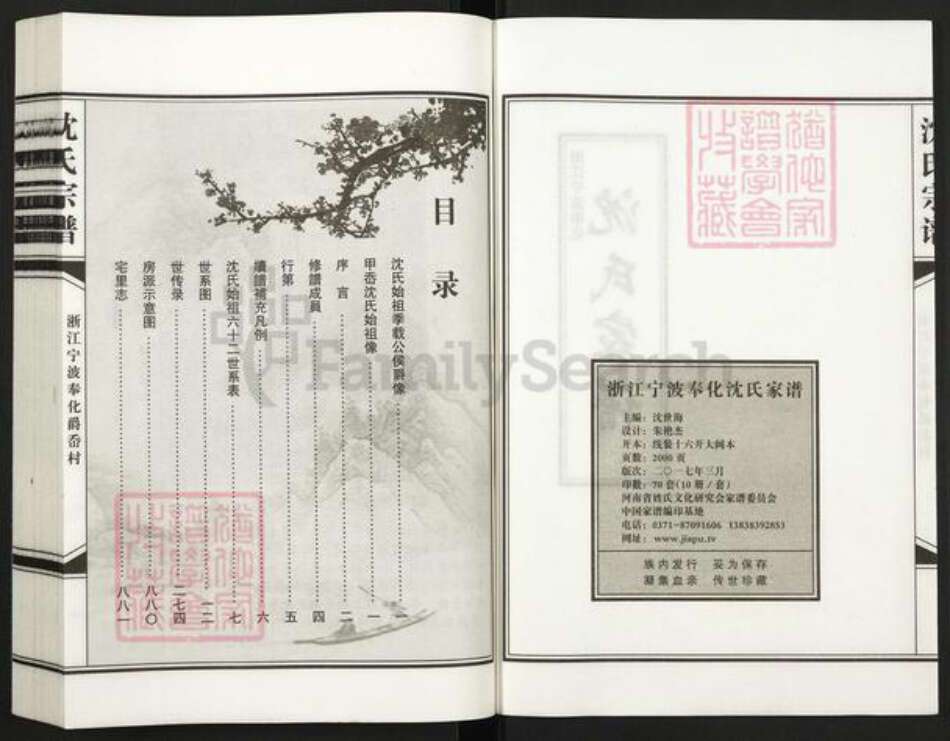 沈氏宗谱
浙江宁波奉化爵岙村
目录
沈氏始祖季载公侯爵像 一
甲岙沈氏始祖像 一
序言 二
修譜成員 四
行第 五
續譜補充凡例 六
沈氏始祖六十二世系表 七
世系图 一二
世传录 二七四
房派示意图 八八〇
宅里志 八八一
FamilySearch
沈氏宗谱
浙江宁波奉化沈氏家谱
主编：沈世海
设计：朱艳杰
开本：线装十六开大阔本
页数：2000 页
版次：二〇一七年三月
印数：70 套(10 册/套)
河南省姓氏文化研究会家谱委员会
中国家谱编印基地
电话：0371-87091606 13838392853
网址：www.jiapu.tv
族内发行 妥为保存
凝集血亲 传世珍藏